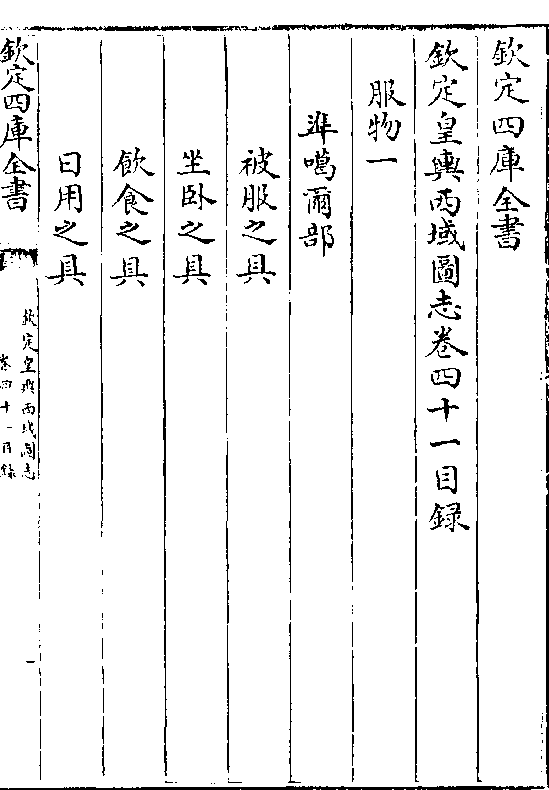 欽定四庫全書
欽定皇輿西域圖志卷四十一目録
服物一
準噶爾部
被服之具
坐卧之具
飲食之具
日用之具
欽定四庫全書
欽定皇輿西域圖志
卷四十一目録
一